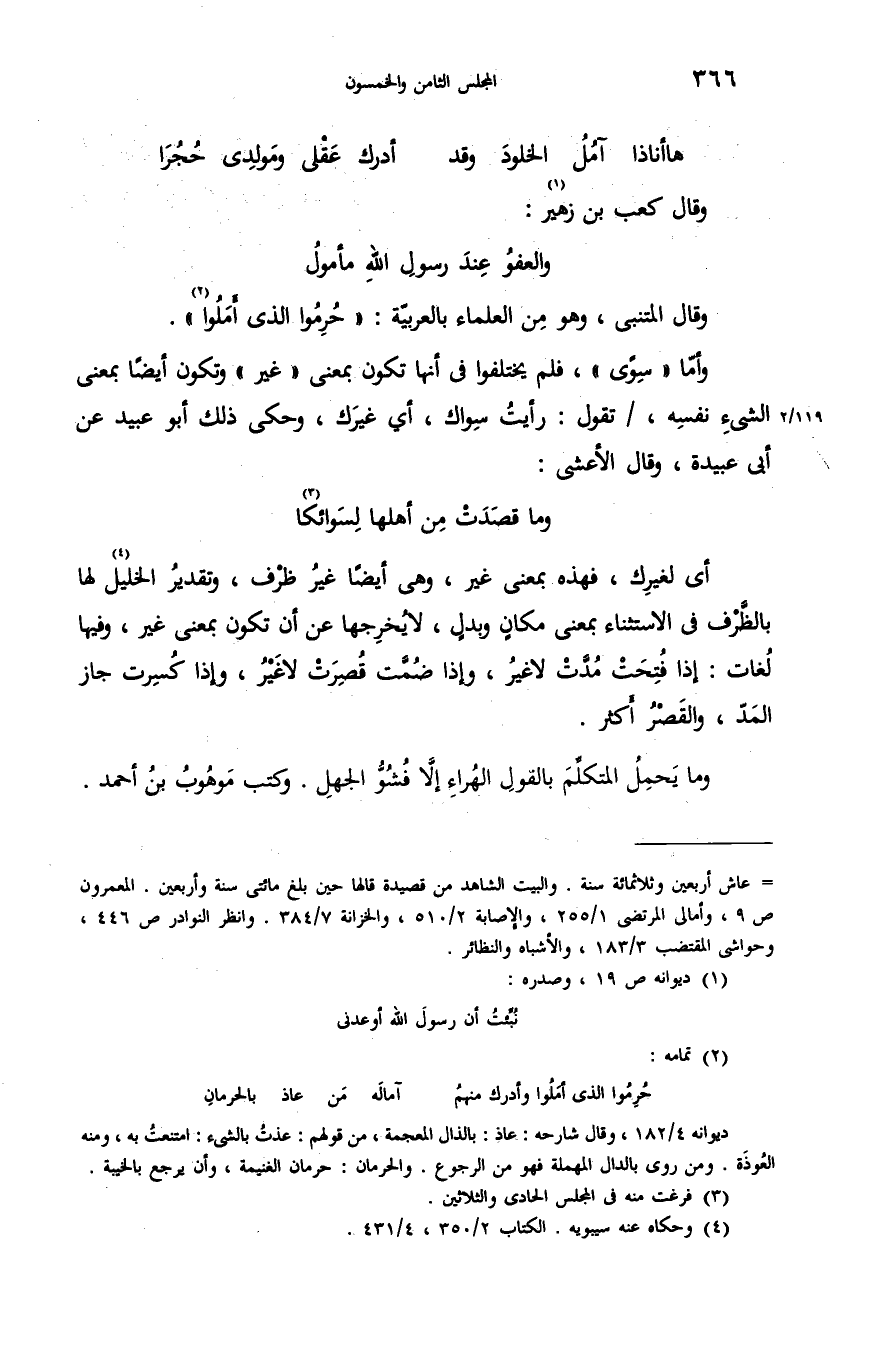 ٣٦٦ المجلس الثامن والخمسون
هاأناذا آمُلُ الخلودَ وقد أدرك عَقْلى ومَولِدِى حُجُرَا
وقال كعب بن زهير(١) :
والعفوُ عِندَ رسولِ اللهِ مأمولُ
وقال المتنبى ، وهو مِن العلماء بالعربيّة : « حُرِمُوا الذى أَمَلُوا(٢) » .
وأمّا « سِوًى » ، فلم يختلفوا فى أنها تكون بمعنى « غير » وتكون أيضًا بمعنى
٢/١١٩ الشىءِ نفسِه ، / تقول : رأيتُ سِواك ، أي غيرَك ، وحكى ذلك أبو عبيد عن
أبى عبيدة ، وقال الأعشى :
وما قصَدَتْ مِن أهلها لِسَوائكَا(٣)
أى لغيرِك ، فهذه بمعنى غير ، وهى أيضًا غيرُ ظرْف ، وتقديرُ الخليل(٤) لها
بالظَّرْف فى الاستثناء بمعنى مكانٍ وبدلٍ ، لايُخرِجها عن أن تكون بمعنى غير ، وفيها
لُغات : إذا فُتِحَتْ مُدَّتْ لاغيرُ ، وإذا ضُمَّت قُصِرَتْ لاغَيْرُ ، وإذا كُسِرت جاز
المَدّ ، والقَصْرُ أكثر .
وما يَحمِلُ المتكلِّمَ بالقولِ الهُراءِ إلَّا فُشُوُّ الجهلِ . وكتب مَوهُوبُ بنُ أحمد .
= عاش أربعين وثلاثمائة سنة . والبيت الشاهد من قصيدة قالها حين بلغ مائتى سنة وأربعين . المعمرون
ص ٩ ، وأمالى المرتضى ٢٥٥/١ ، والإصابة ٥١٠/٢ ، والخزانة ٣٨٤/٧ . وانظر النوادر ص ٤٤٦ ،
وحواشى المقتضب ١٨٣/٣ ، والأشباه والنظائر .
(١) ديوانه ص ١٩ ، وصدره :
نُبِّئتُ أن رسولَ الله أوعدنى
(٢) تمامه :
حُرِمُوا الذى أمَلُوا وأدرك منهمُ آمالَه مَن عاذ بالحرمانِ
ديوانه ١٨٢/٤ ، وقال شارحه : عاذ : بالذال المعجمة ، من قولهم : عذتُ بالشىء : امتنعتُ به ، ومنه
العُوذَة . ومن روى بالدال المهملة فهو من الرجوع . والحرمان : حرمان الغنيمة ، وأن يرجع بالخيبة .
(٣) فرغت منه فى المجلس الحادى والثلاثين .
(٤) وحكاه عنه سيبويه . الكتاب ٣٥٠/٢ ، ٤٣١/٤ .